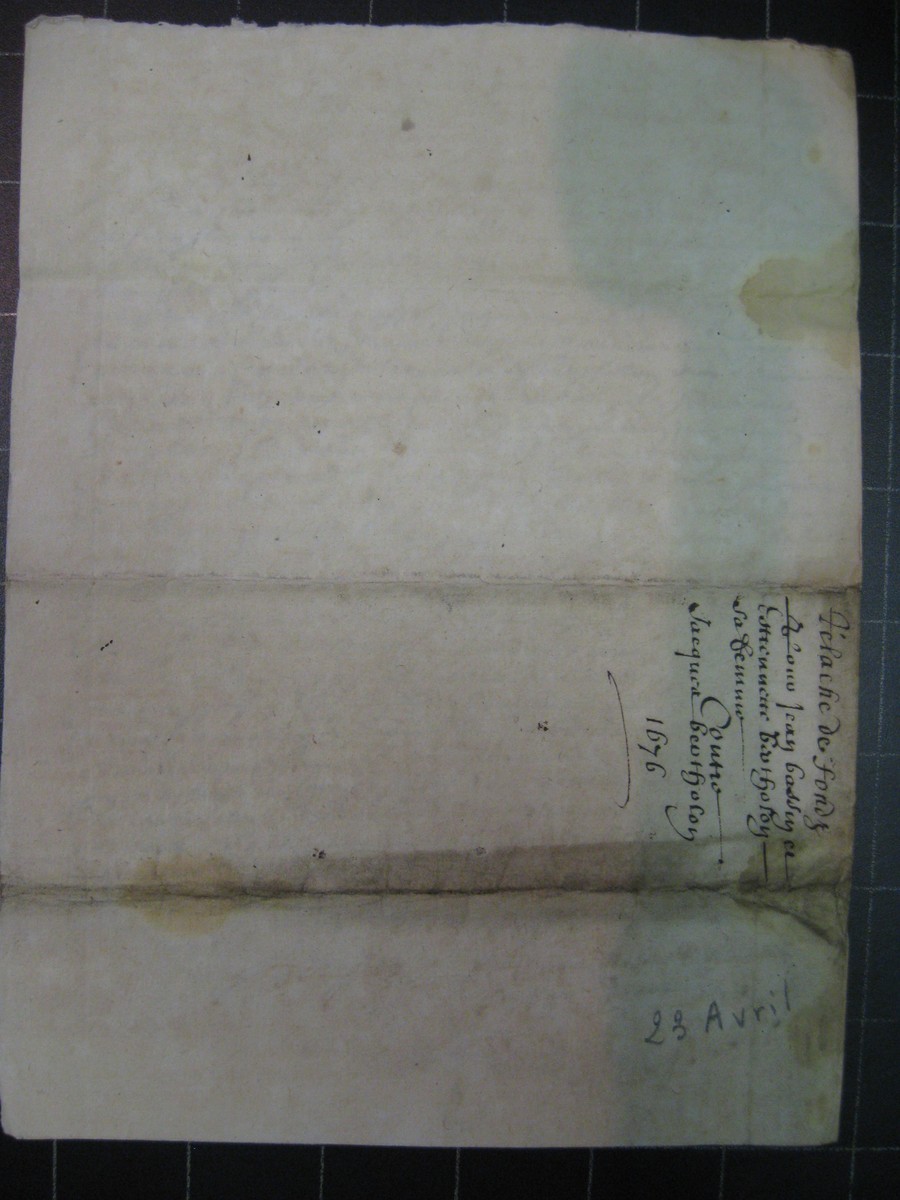 relache de fondz
Pour Jean bassy et
Estiennette bertholoy
sa femme
Contre
Jacques bertholoy
1676
23 Avril